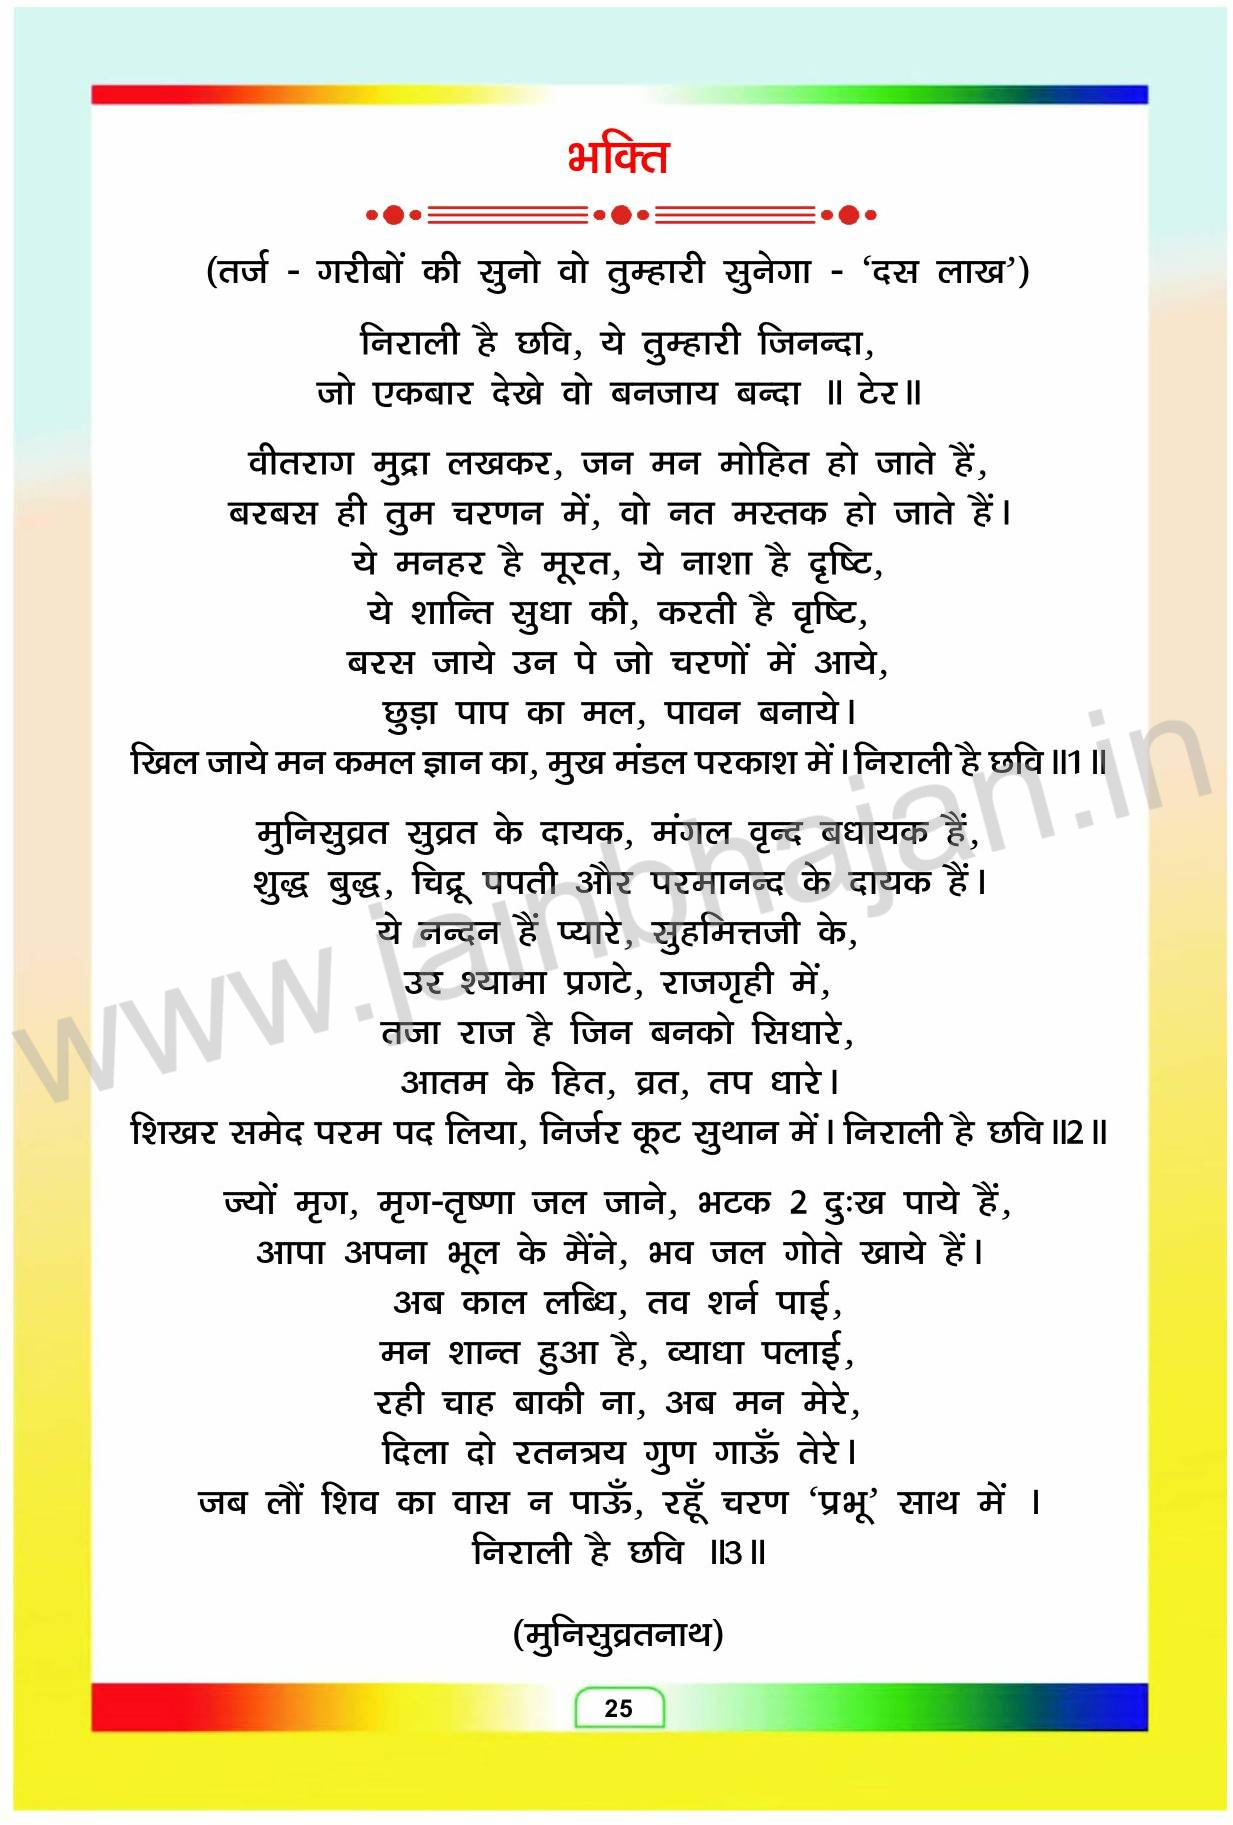 भक्ति
(तर्ज - गरीबों की सुनो वो तुम्हारी सुनेगा - ‘दस लाख’)
निराली है छवि, ये तुम्हारी जिनन्दा,
जो एकबार देखे वो बनजाय बन्दा ॥ टेर॥
वीतराग मुद्रा लखकर, जन मन मोहित हो जाते हैं,
बरबस ही तुम चरणन में, वो नत मस्तक हो जाते हैं।
ये मनहर है मूरत, ये नाशा है दृष्टि,
ये शान्ति सुधा की, करती है वृष्टि,
बरस जाये उन पे जो चरणों में आये,
छुड़ा पाप का मल, पावन बनाये।
खिल जाये मन कमल ज्ञान का, मुख मंडल परकाश में। निराली है छवि॥1॥
मुनिसुव्रत सुव्रत के दायक, मंगल वृन्द बधायक हैं,
शुद्ध बुद्ध, चिद्रू पपती और परमानन्द के दायक हैं।
ये नन्दन हैं प्यारे, सुहमित्तजी के,
उर श्यामा प्रगटे, राजगृही में,
तजा राज है जिन बनको सिधारे,
आतम के हित, व्रत, तप धारे।
शिखर समेद परम पद लिया, निर्जर कूट सुथान में। निराली है छवि॥2॥
ज्यों मृग, मृग-तृष्णा जल जाने, भटक 2 दुःख पाये हैं,
आपा अपना भूल के मैंने, भव जल गोते खाये हैं।
अब काल लब्धि, तव शर्न पाई,
मन शान्त हुआ है, व्याधा पलाई,
रही चाह बाकी ना, अब मन मेरे,
दिला दो रतनत्रय गुण गाऊँ तेरे।
जब लौं शिव का वास न पाऊँ, रहूँ चरण ‘प्रभू’ साथ में ।
निराली है छवि ॥3॥
(मुनिसुव्रतनाथ)
25
www.jainbhajan.in